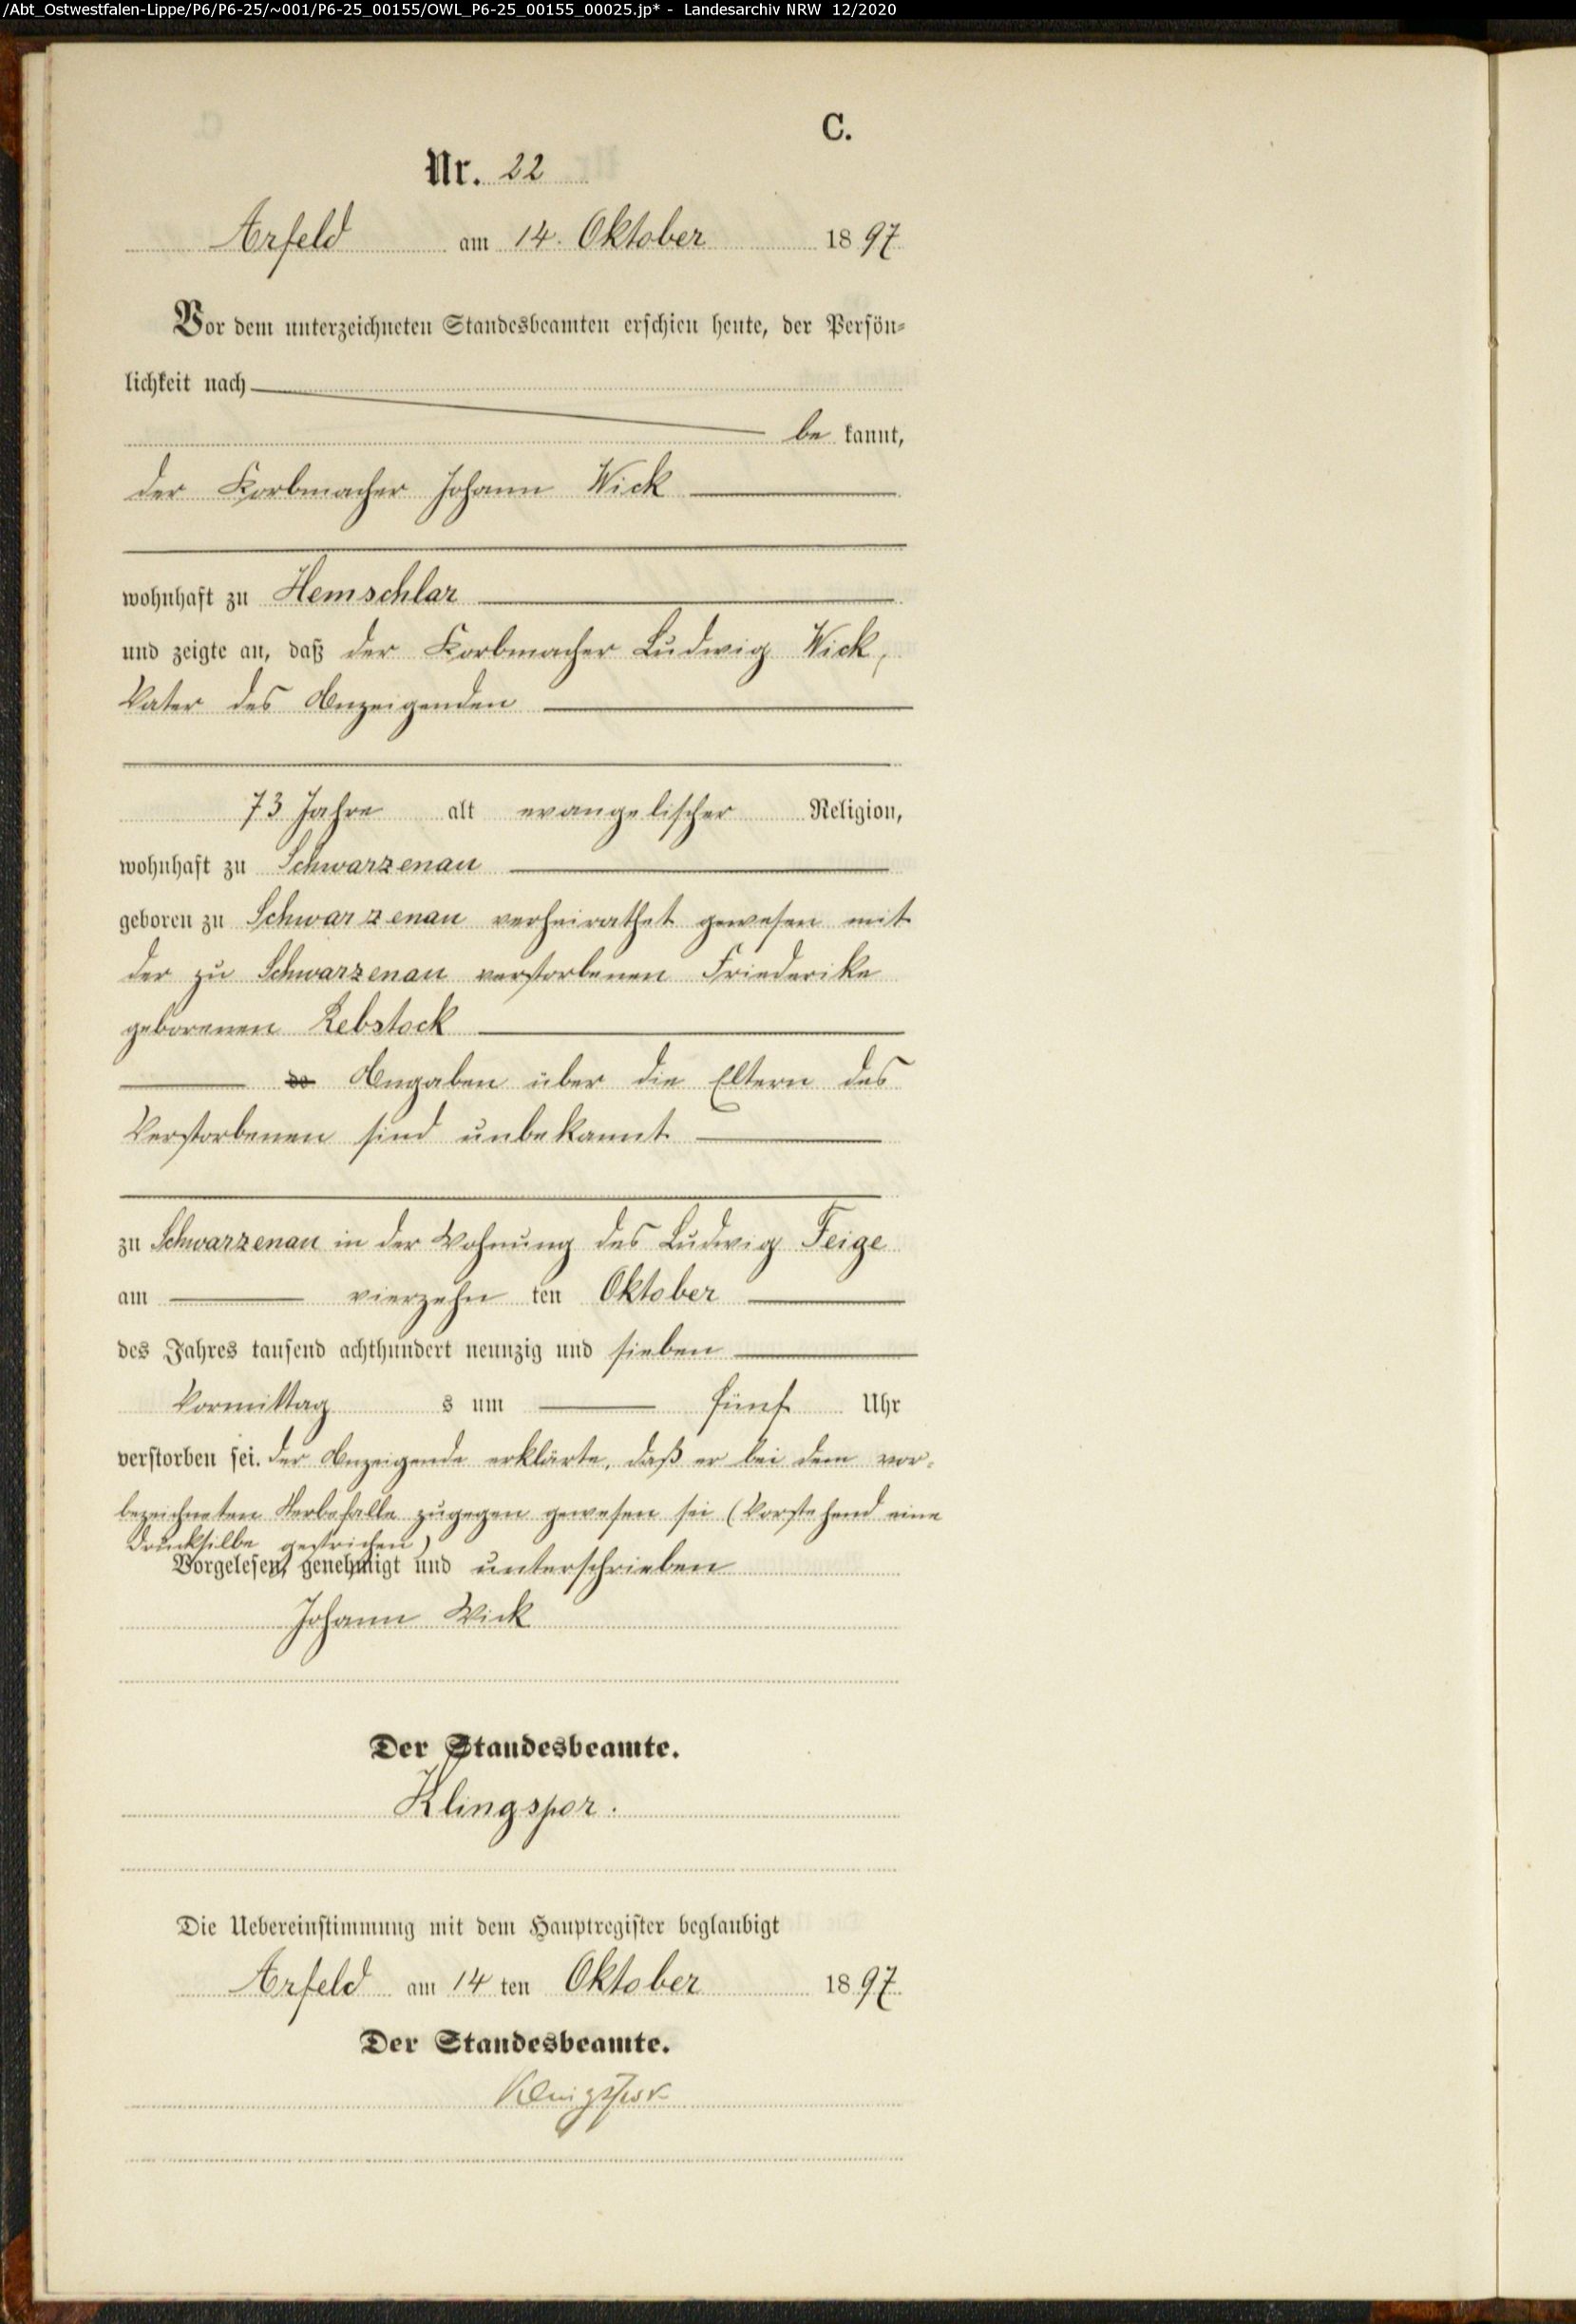 /Abt_Ostwestfalen-Lippe/P6/P6-25/~001/P6-25_00155/OWL_P6-25_00155_00025.jp* - Landesarchiv NRW 12/2020
C.
Nr. 22
Arfeld am 14. Oktober 1897
Vor dem unterzeichneten Standesbeamten erschien heute, der Persön-
lichkeit nach
be kannt,
der Korbmacher Johann Wick
wohnhaft zu Hemschlar
und zeigte an, daß der Korbmacher Ludwig Wick,
Vater des Anzeigenden
73 Jahre alt evangelischer Religion,
wohnhaft zu Schwarzenau
geboren zu Schwarzenau verheirathet gewesen mit
der zu Schwarzenau verstorbenen Friederike
geborenen Rebstock
Angaben über die Eltern des
Verstorbenen sind unbekannt
zu Schwarzenau in der Wohnung des Ludwig Feige
am vierzehn ten Oktober
des Jahres tausend achthundert neunzig und sieben
Vormittag s um fünf Uhr
verstorben sei. Der Anzeigende erklärte, daß er bei dem vor-
bezeichneten Sterbefalle zugegen gewesen sei (Vorstehend eine
Drucksilbe gestrichen)
Vorgelesen, genehmigt und unterschrieben
Johann Wick
Der Standesbeamte.
Klingspor.
Die Uebereinstimmung mit dem Hauptregister beglaubigt
Arfeld am 14 ten Oktober 1897
Der Standesbeamte.
Klingspor